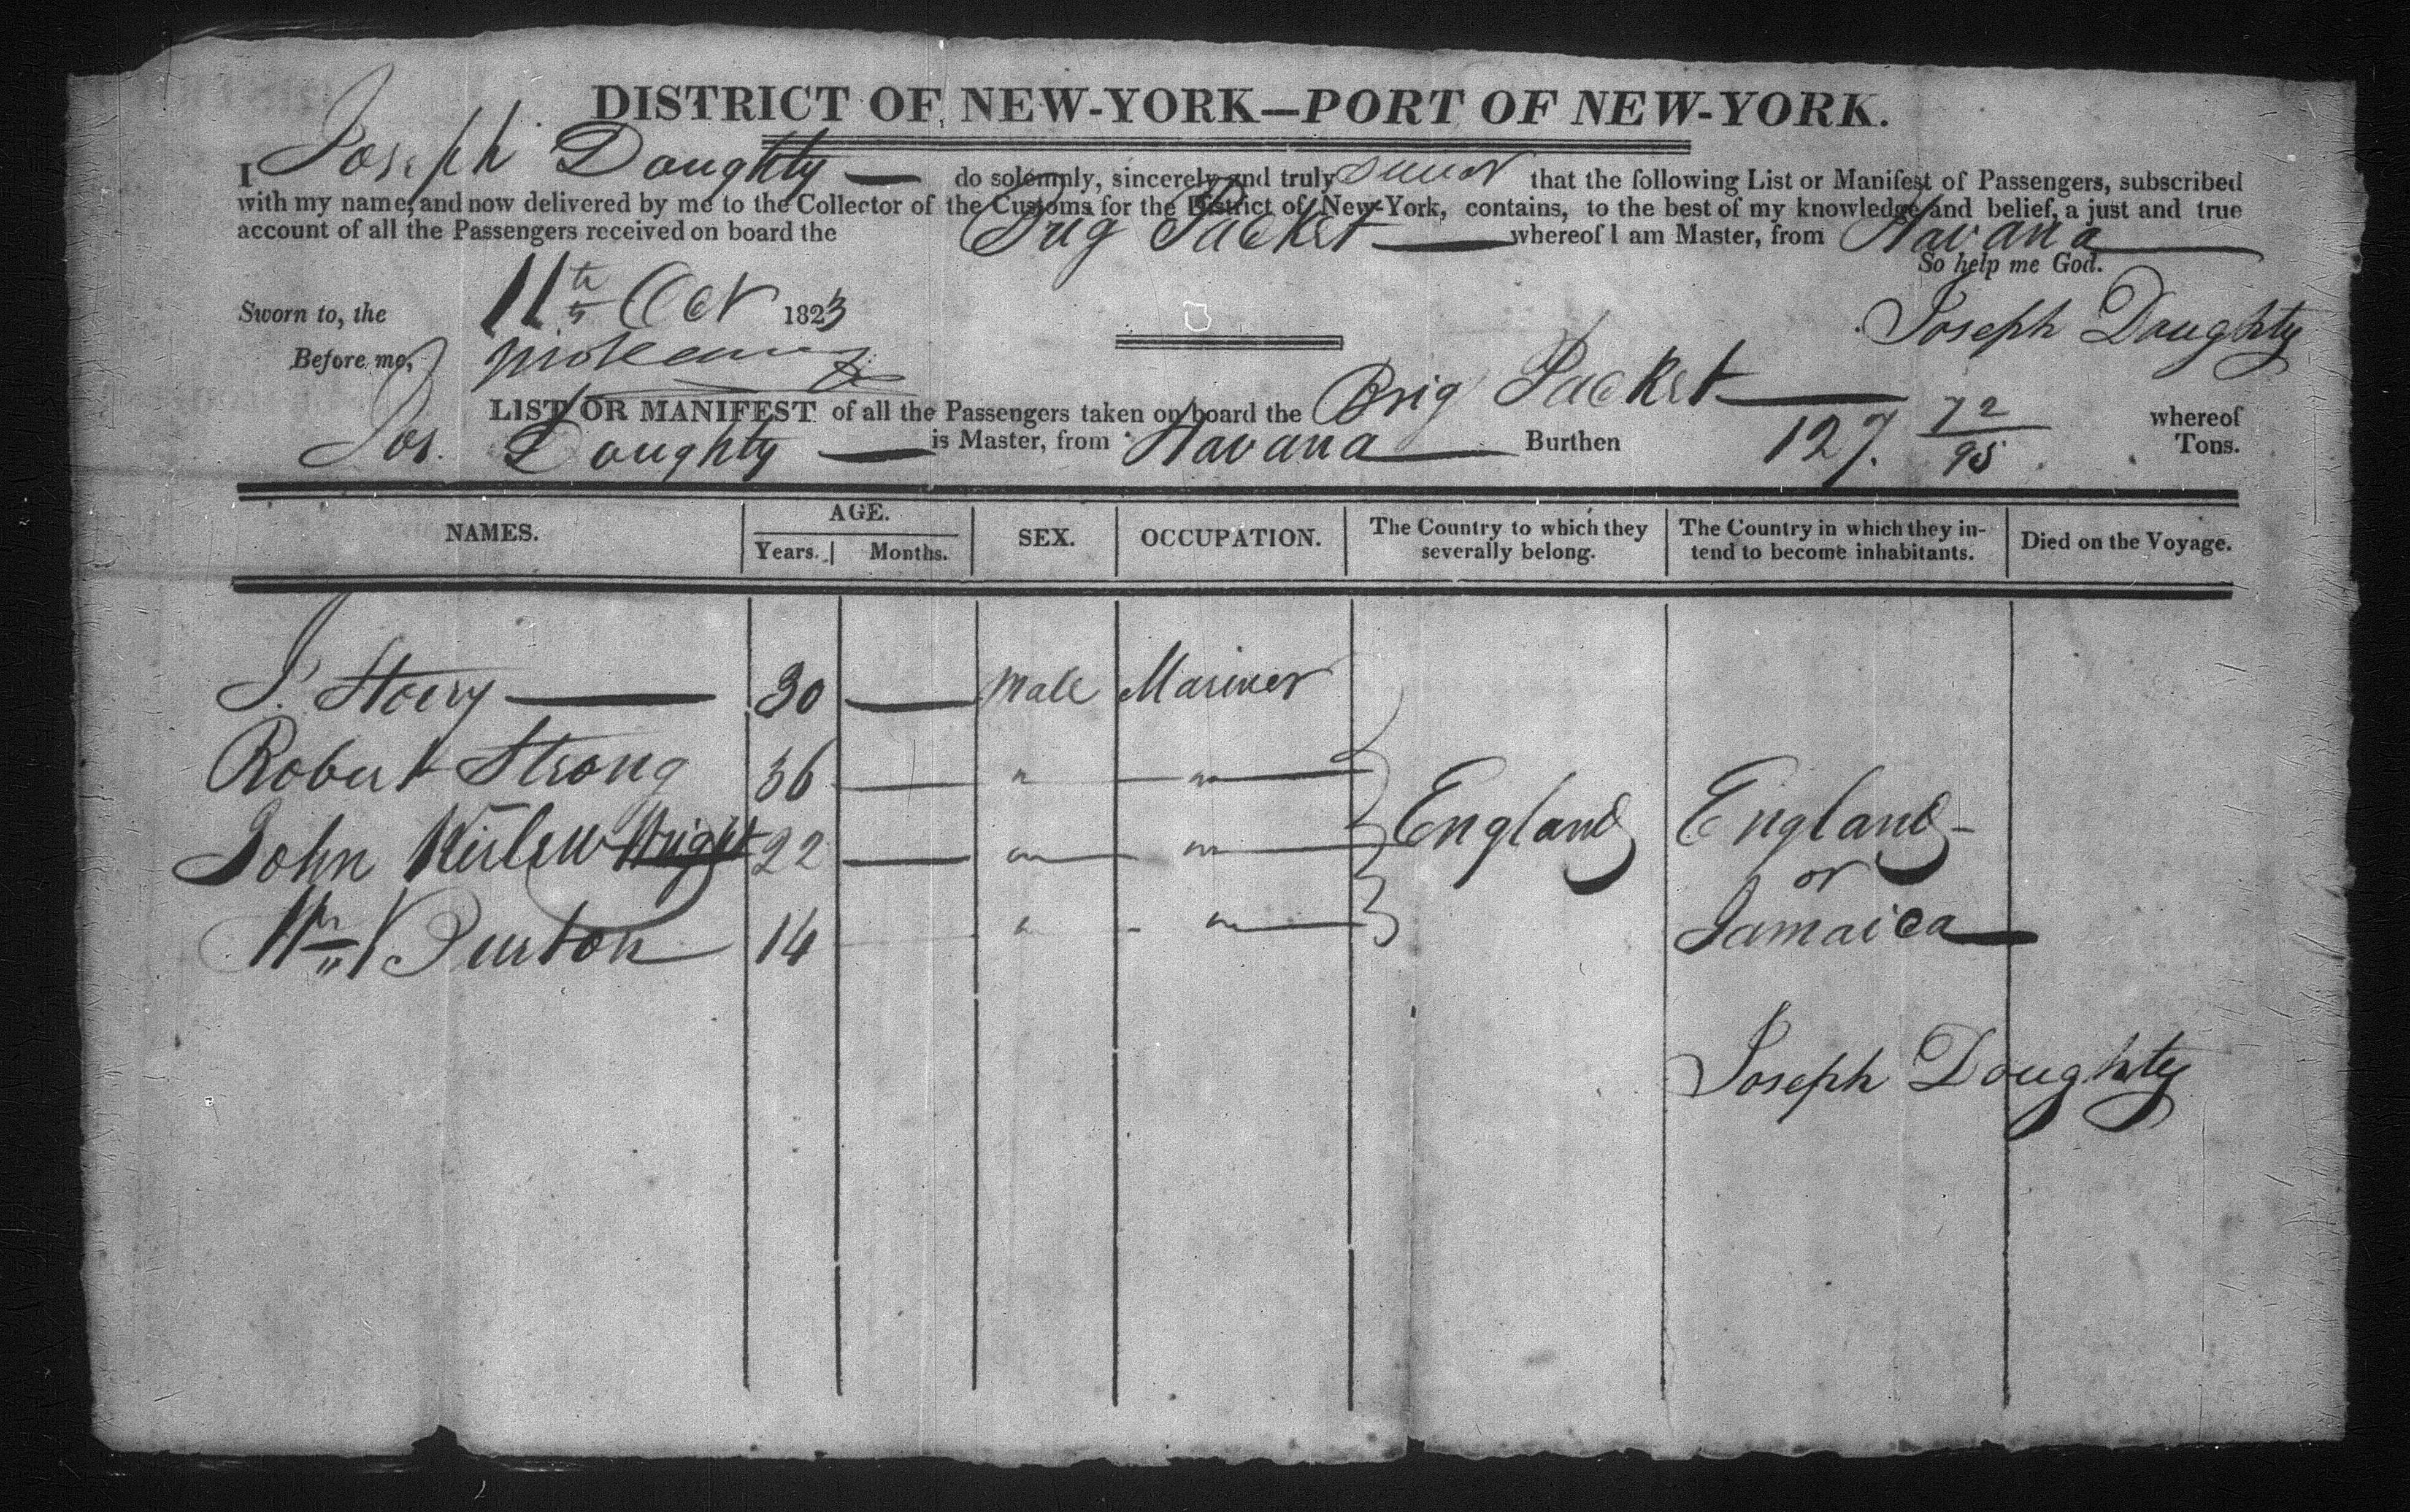 DISTRICT OF NEW-YORK—PORT OF NEW-YORK.
I Joseph Doughty — do solemnly, sincerely and truly swear that the following List or Manifest of Passengers, subscribed
with my name, and now delivered by me to the Collector of the Customs for the District of New-York, contains, to the best of my knowledge and belief, a just and true
account of all the Passengers received on board the Brig Packet — whereof I am Master, from Havana —
So help me God.
Sworn to, the 11th Oct 1823
Joseph Doughty
Before me,
LIST OR MANIFEST of all the Passengers taken on board the Brig Packet — whereof
Jos. Doughty — is Master, from Havana — Burthen 127. 72/95 Tons.
NAMES. AGE. Years. Months. SEX. OCCUPATION. The Country to which they severally belong. The Country in which they intend to become inhabitants. Died on the Voyage.
J. Stoery — 30 — Male Mariner
Robert Strong 36 — " — " —
John Wright 22 — " — " — England England
or
Wm Burton 14 — " - " — Jamaica —
Joseph Doughty